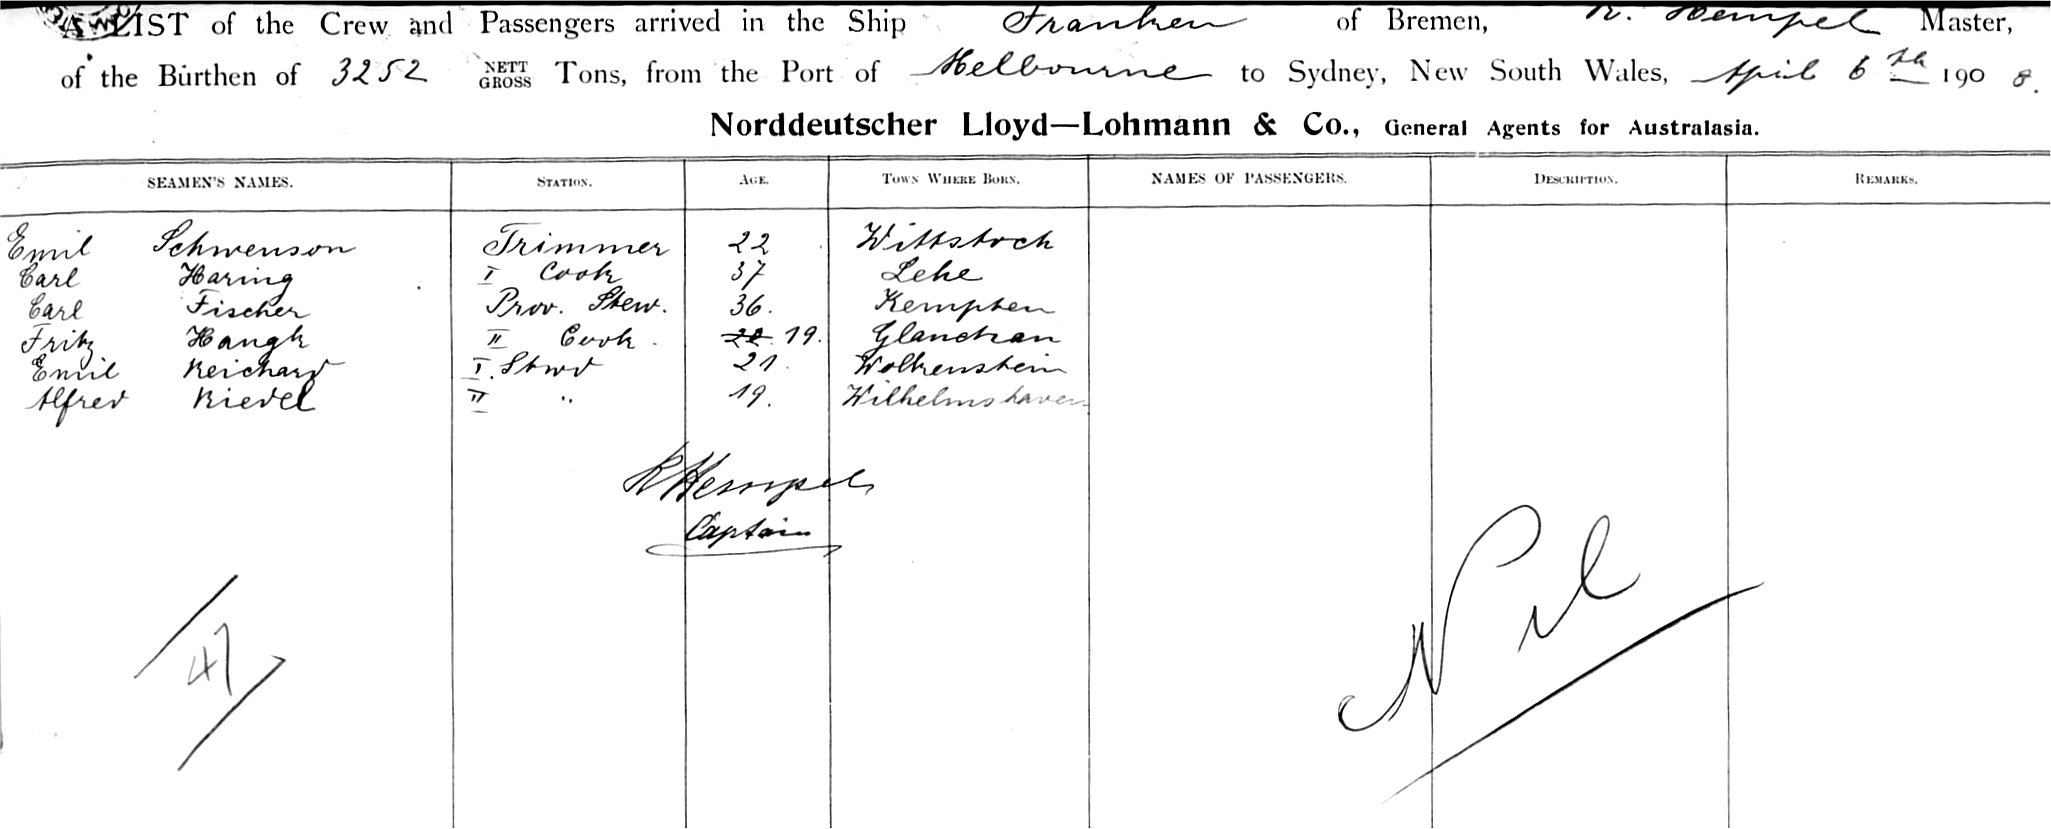 A LIST of the Crew and Passengers arrived in the Ship Franken of Bremen, R. Hempel Master,
of the Burthen of 3252 NETT GROSS Tons, from the Port of Melbourne to Sydney, New South Wales, April 6th 1908.
Norddeutscher Lloyd—Lohmann & Co., General Agents for Australasia.
SEAMEN'S NAMES. STATION. AGE. TOWN WHERE BORN. NAMES OF PASSENGERS. DESCRIPTION. REMARKS.
Emil Schwenson Trimmer 22 Wittstock
Carl Haring I Cook 37 Lehe
Carl Fischer Prov. Stew. 36. Kempten
Fritz Hangk II Cook. 22. 19. Glauchau
Emil Reichard I. Stwd 21. Wolkenstein
Alfred Riedel II " 19. Wilhelmshaven
R Hempel
Captain
Nil
47